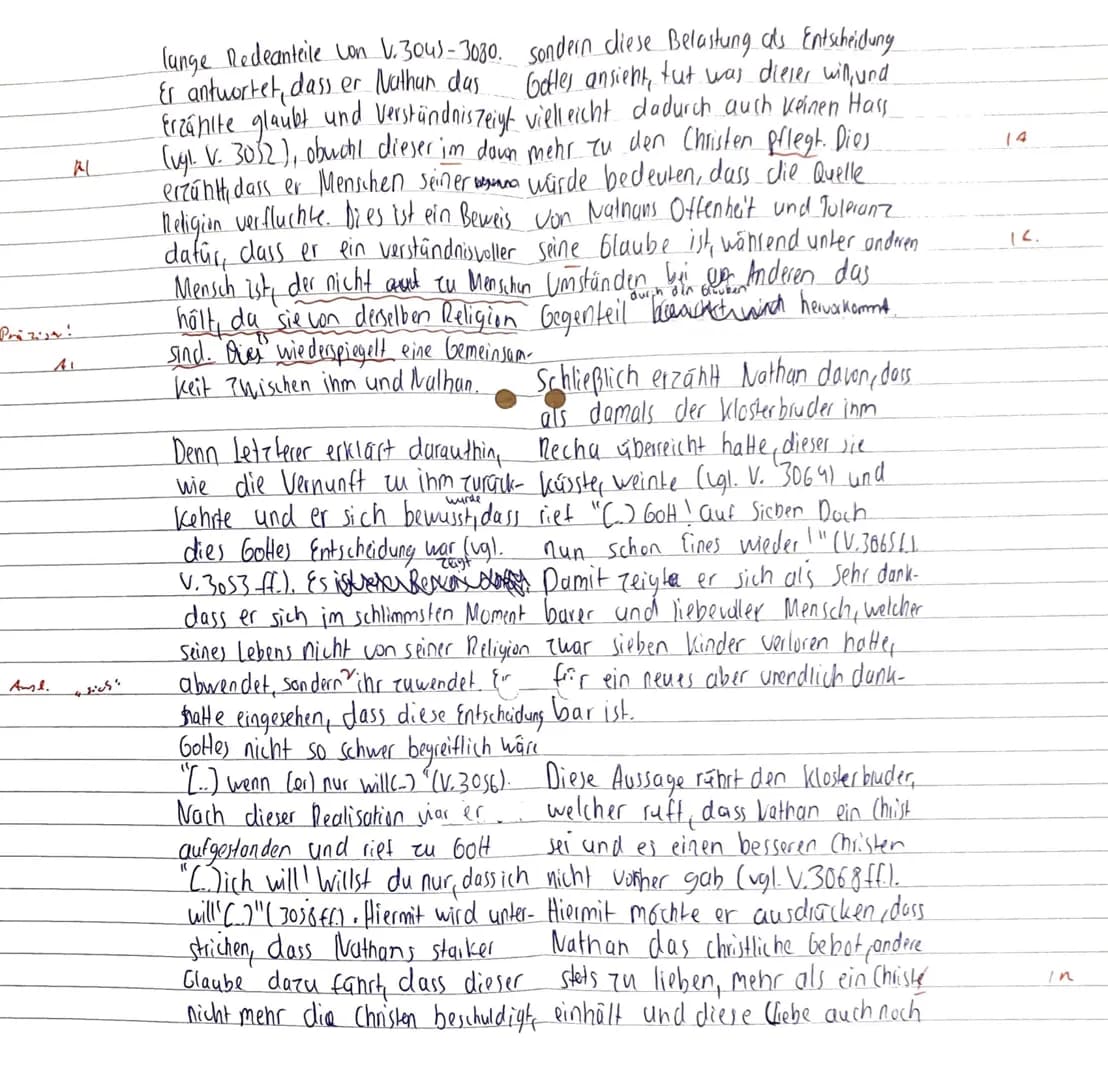 lange Redeanteile von V.3045-3080.
Er antwortet, dass er Nathan das
Erzählte glaubt und Verständnis zeigt
(vgl. V. 3052), obwohl dieser im davon
erzählt, dass er Menschen seiner
Religion verfluchte. Dies ist ein Beweis
dafür, dass er ein verständnisvoller
Mensch ist, der nicht zu Menschen
hält, da sie von derselben Religion
sind. Dies wiederspiegelt eine Gemeinsam-
keit zwischen ihm und Nathan.
Denn Letzterer erklärt daraufhin,
wie die Vernunft zu ihm zurück-
kehrte und er sich bewusst wurde, dass
dies Gottes Entscheidung war (vgl.
V.3053 ff.). Es zeigt,
dass er sich im schlimmsten Moment
seines Lebens nicht von seiner Religion
abwendet, sondern ihr zuwendet. Er
hatte eingesehen, dass diese Entscheidung
Gottes nicht so schwer begreiflich wäre
"[..] wenn (er) nur will(..)"(V.3056).
Nach dieser Realisation war er
aufgestanden und rief zu Gott
"(..)ich will! Willst du nur, dass ich
will!(..)"(3058ff.). Hiermit wird unter-
strichen, dass Nathans starker
Glaube dazu führt, dass dieser
nicht mehr die Christen beschuldigt,
sondern diese Belastung als Entscheidung
Gottes ansieht, tut was dieser will, und
vielleicht dadurch auch keinen Hass
mehr zu den Christen pflegt. Dies
würde bedeuten, dass die Quelle
von Nathans Offenheit und Toleranz
seine Glaube ist, während unter anderen
Umständen bei Anderen das
Gegenteil durch den Glauben hervorkommt.
Schließlich erzählt Nathan davon, dass
als damals der Klosterbruder ihm
Recha überreicht hatte, dieser sie
küsste, weinte (vgl. V. 3064) und
rief "(..) Gott! auf Sieben Doch
nun schon Eines wieder!" (V.3065f.).
Damit zeigte er sich als sehr dank-
barer und liebevoller Mensch, welcher
zwar sieben Kinder verloren hatte,
für ein neues aber unendlich dank-
bar ist.
Diese Aussage rührt den Klosterbruder,
welcher ruft, dass Nathan ein Christ
sei und es einen besseren Christen
nicht vorher gab (vgl. V.3068ff.).
Hiermit möchte er ausdrücken, dass
Nathan das christliche Gebot, andere
stets zu lieben, mehr als ein Christ
einhält und diese Liebe auch noch
R1
Präzise!
A1
Ausl. "sich"